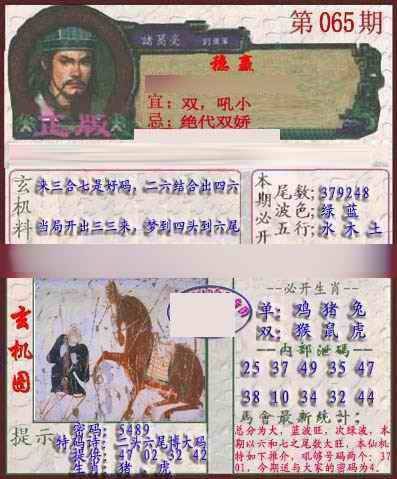 第065期
諸葛亮
稳赢
宜：双，吼小
忌：绝代双娇
正版
玄机料
来三合七是好码，二六结合出四六
当局开出三三来，梦到四头到六尾
本期必开
尾数：379248
波色：绿 蓝
五行：水 木 土
玄机图
--必开生肖--
单：鸡 猪 兔
双：猴 鼠 虎
--内部泄码--
25 37 49 35 47
38 10 34 32 44
馬會最新统计：
总分为大，蓝波旺，次绿波，本
期以六和七之尾数大旺，本仙机
特如下推介，吼够号码两个：37
01，今期送与大家的密码为4.
提示
密码：5489
特码诗：二头六尾博大码
提供：47 02 32 42
生肖：猪．虎